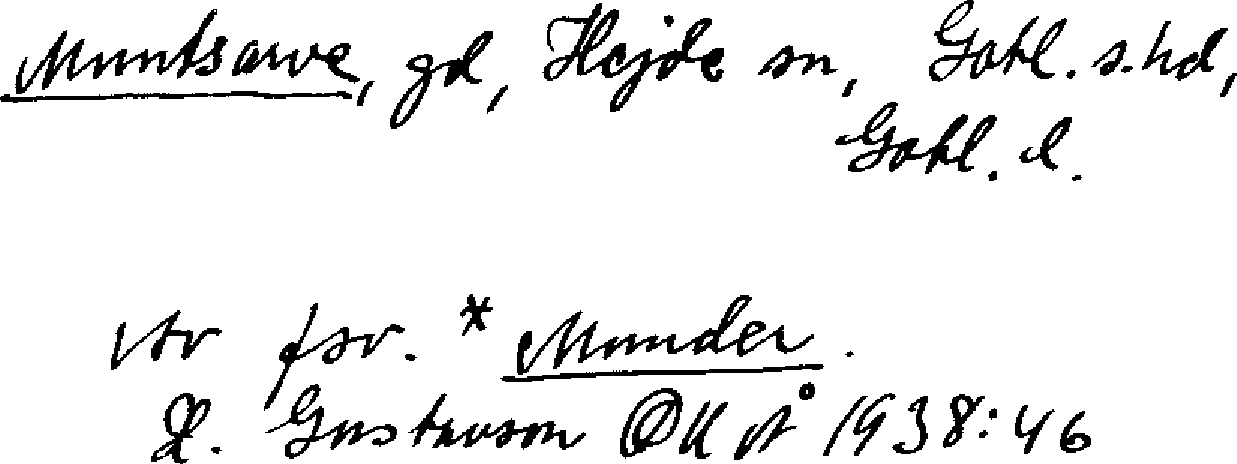 Muntsarve, gd, Hejde sn, Gotl. s. hd,
Gotl. l.
Av fsv. * Munder.
H. Gustavson OKÅ 1938:46